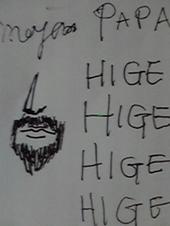 PAPA
HIGE
HIGE
HIGE
HIGE